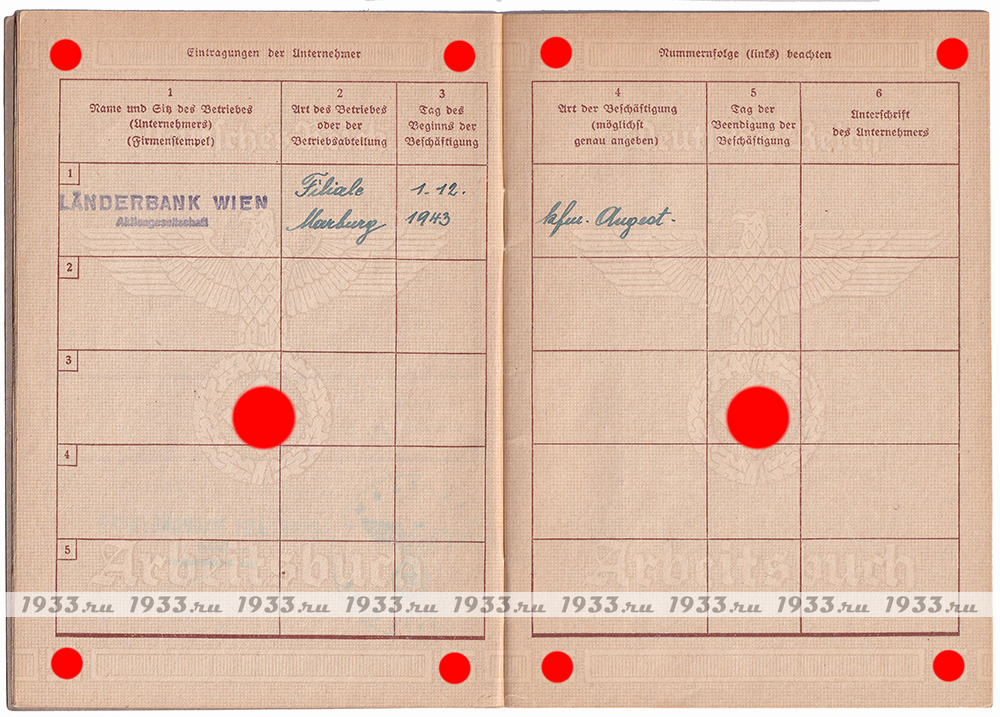 Eintragungen der Unternehmer
Nummernfolge (links) beachten
1
Name und Sitz des Betriebes
(Unternehmers)
(Firmenstempel)
2
Art des Betriebes
oder der
Betriebsabteilung
3
Tag des
Beginns der
Beschäftigung
4
Art der Beschäftigung
(möglichst
genau angeben)
5
Tag der
Beendigung der
Beschäftigung
6
Unterschrift
des Unternehmers
1
LÄNDERBANK WIEN
Aktiengesellschaft
Filiale
Marburg
1.12.
1943
kfm. Angest.
2
3
4
5
Arbeitsbuch
Arbeitsbuch
1933.ru 1933.ru 1933.ru 1933.ru 1933.ru 1933.ru 1933.ru 1933.ru 1933.ru